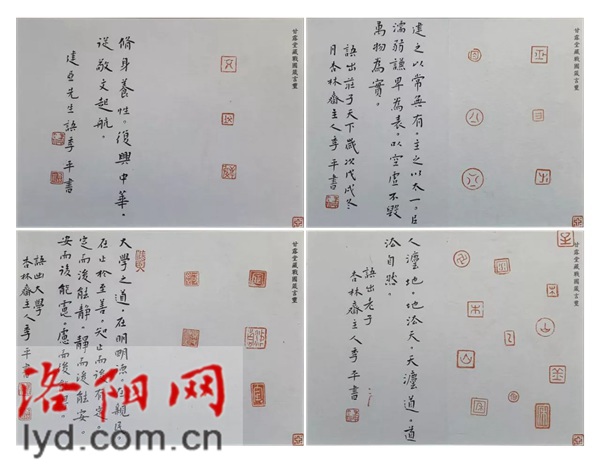 甘露堂藏戰國箴言璽
脩身養性。復興中華。
從敬文起航。
建亞先生語李平書
甘露堂藏戰國箴言璽
建之以常無有。主之以太一。㠯
濡弱謙卑為表。以空虛不毀
萬物為實。
語出莊子天下歲次戊戌冬
月杏林齋主人李平書
甘露堂藏戰國箴言璽
大學之道。在明明德。在親民
在止於至善。知止而後有定。
定而後能靜。靜而後能安。
安而後能慮。慮而後能得。
語出大學
杏林齋主人李平書
甘露堂藏戰國箴言璽
人灋地。地法天。天灋道。道
法自然。
語出老子
杏林齋主人李平書
洛阳网
lyd.com.cn